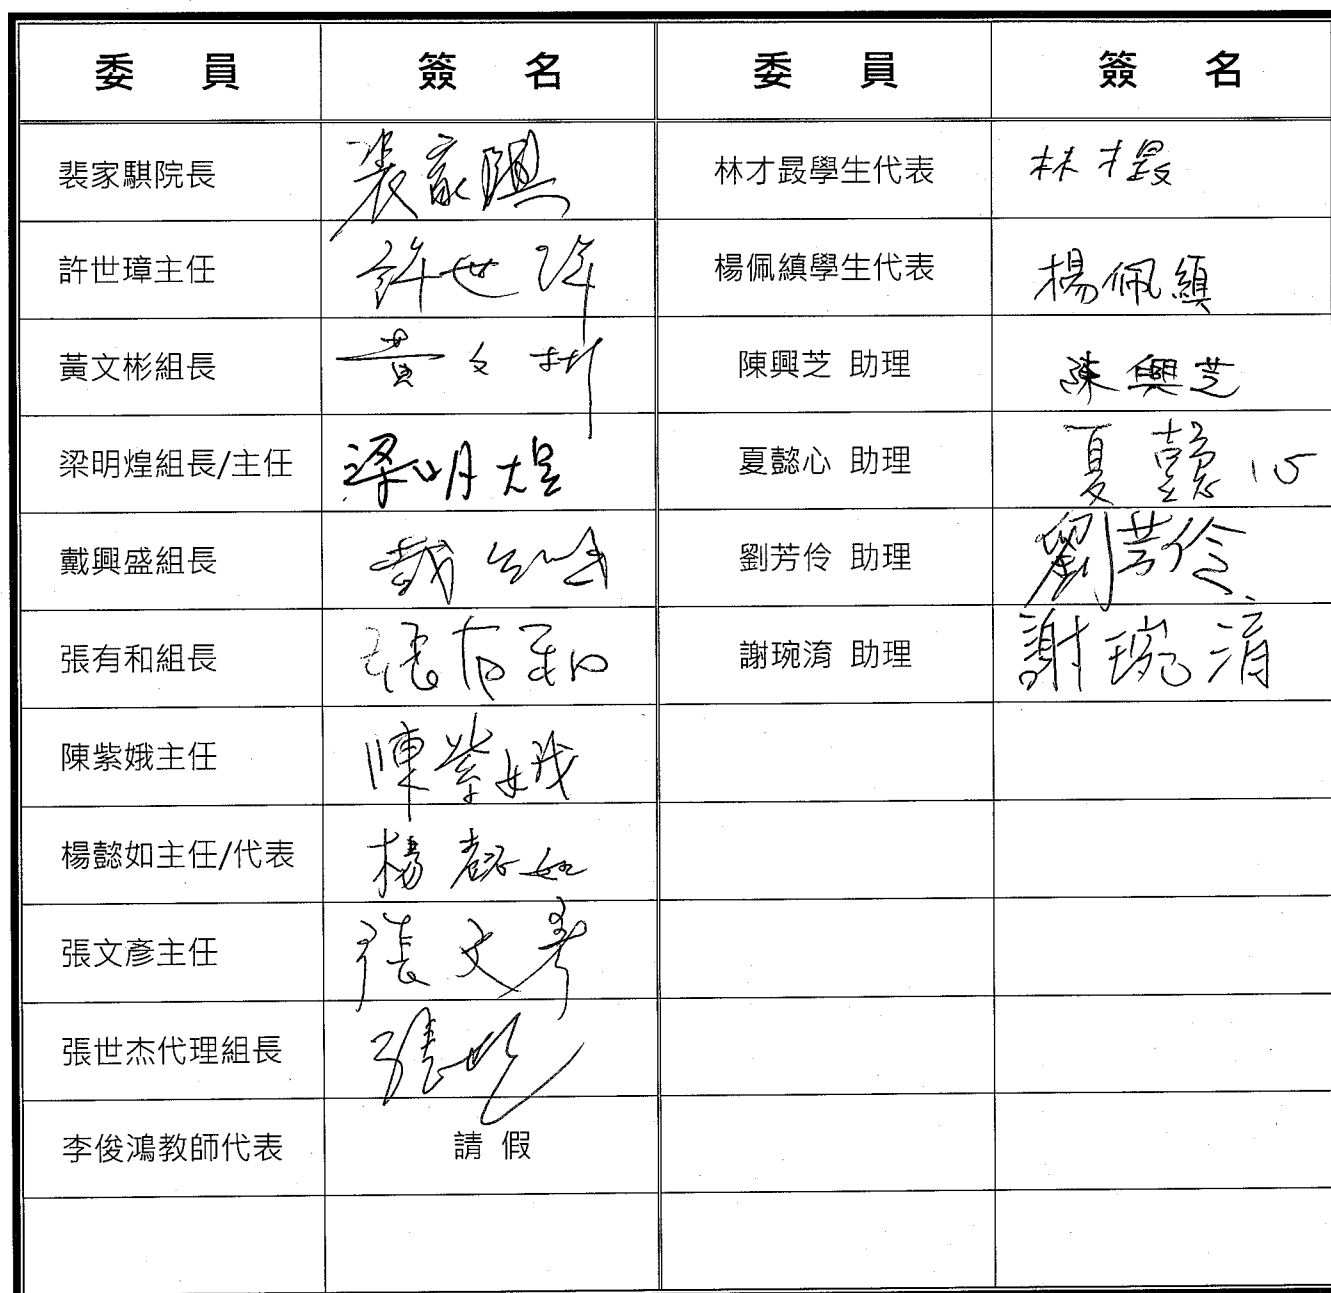 委 員 簽 名 委 員 簽 名
裴家騏院長 裴家騏 林才晸學生代表 林才晸
許世璋主任 許世璋 楊佩縝學生代表 楊佩縝
黃文彬組長 黃文彬 陳興芝 助理 陳興芝
梁明煌組長/主任 梁明煌 夏懿心 助理 夏懿心
戴興盛組長 戴興盛 劉芳伶 助理 劉芳伶
張有和組長 張有和 謝琬淯 助理 謝琬淯
陳紫娥主任 陳紫娥
楊懿如主任/代表 楊懿如
張文彥主任 張文彥
張世杰代理組長 張世杰
李俊鴻教師代表 請 假